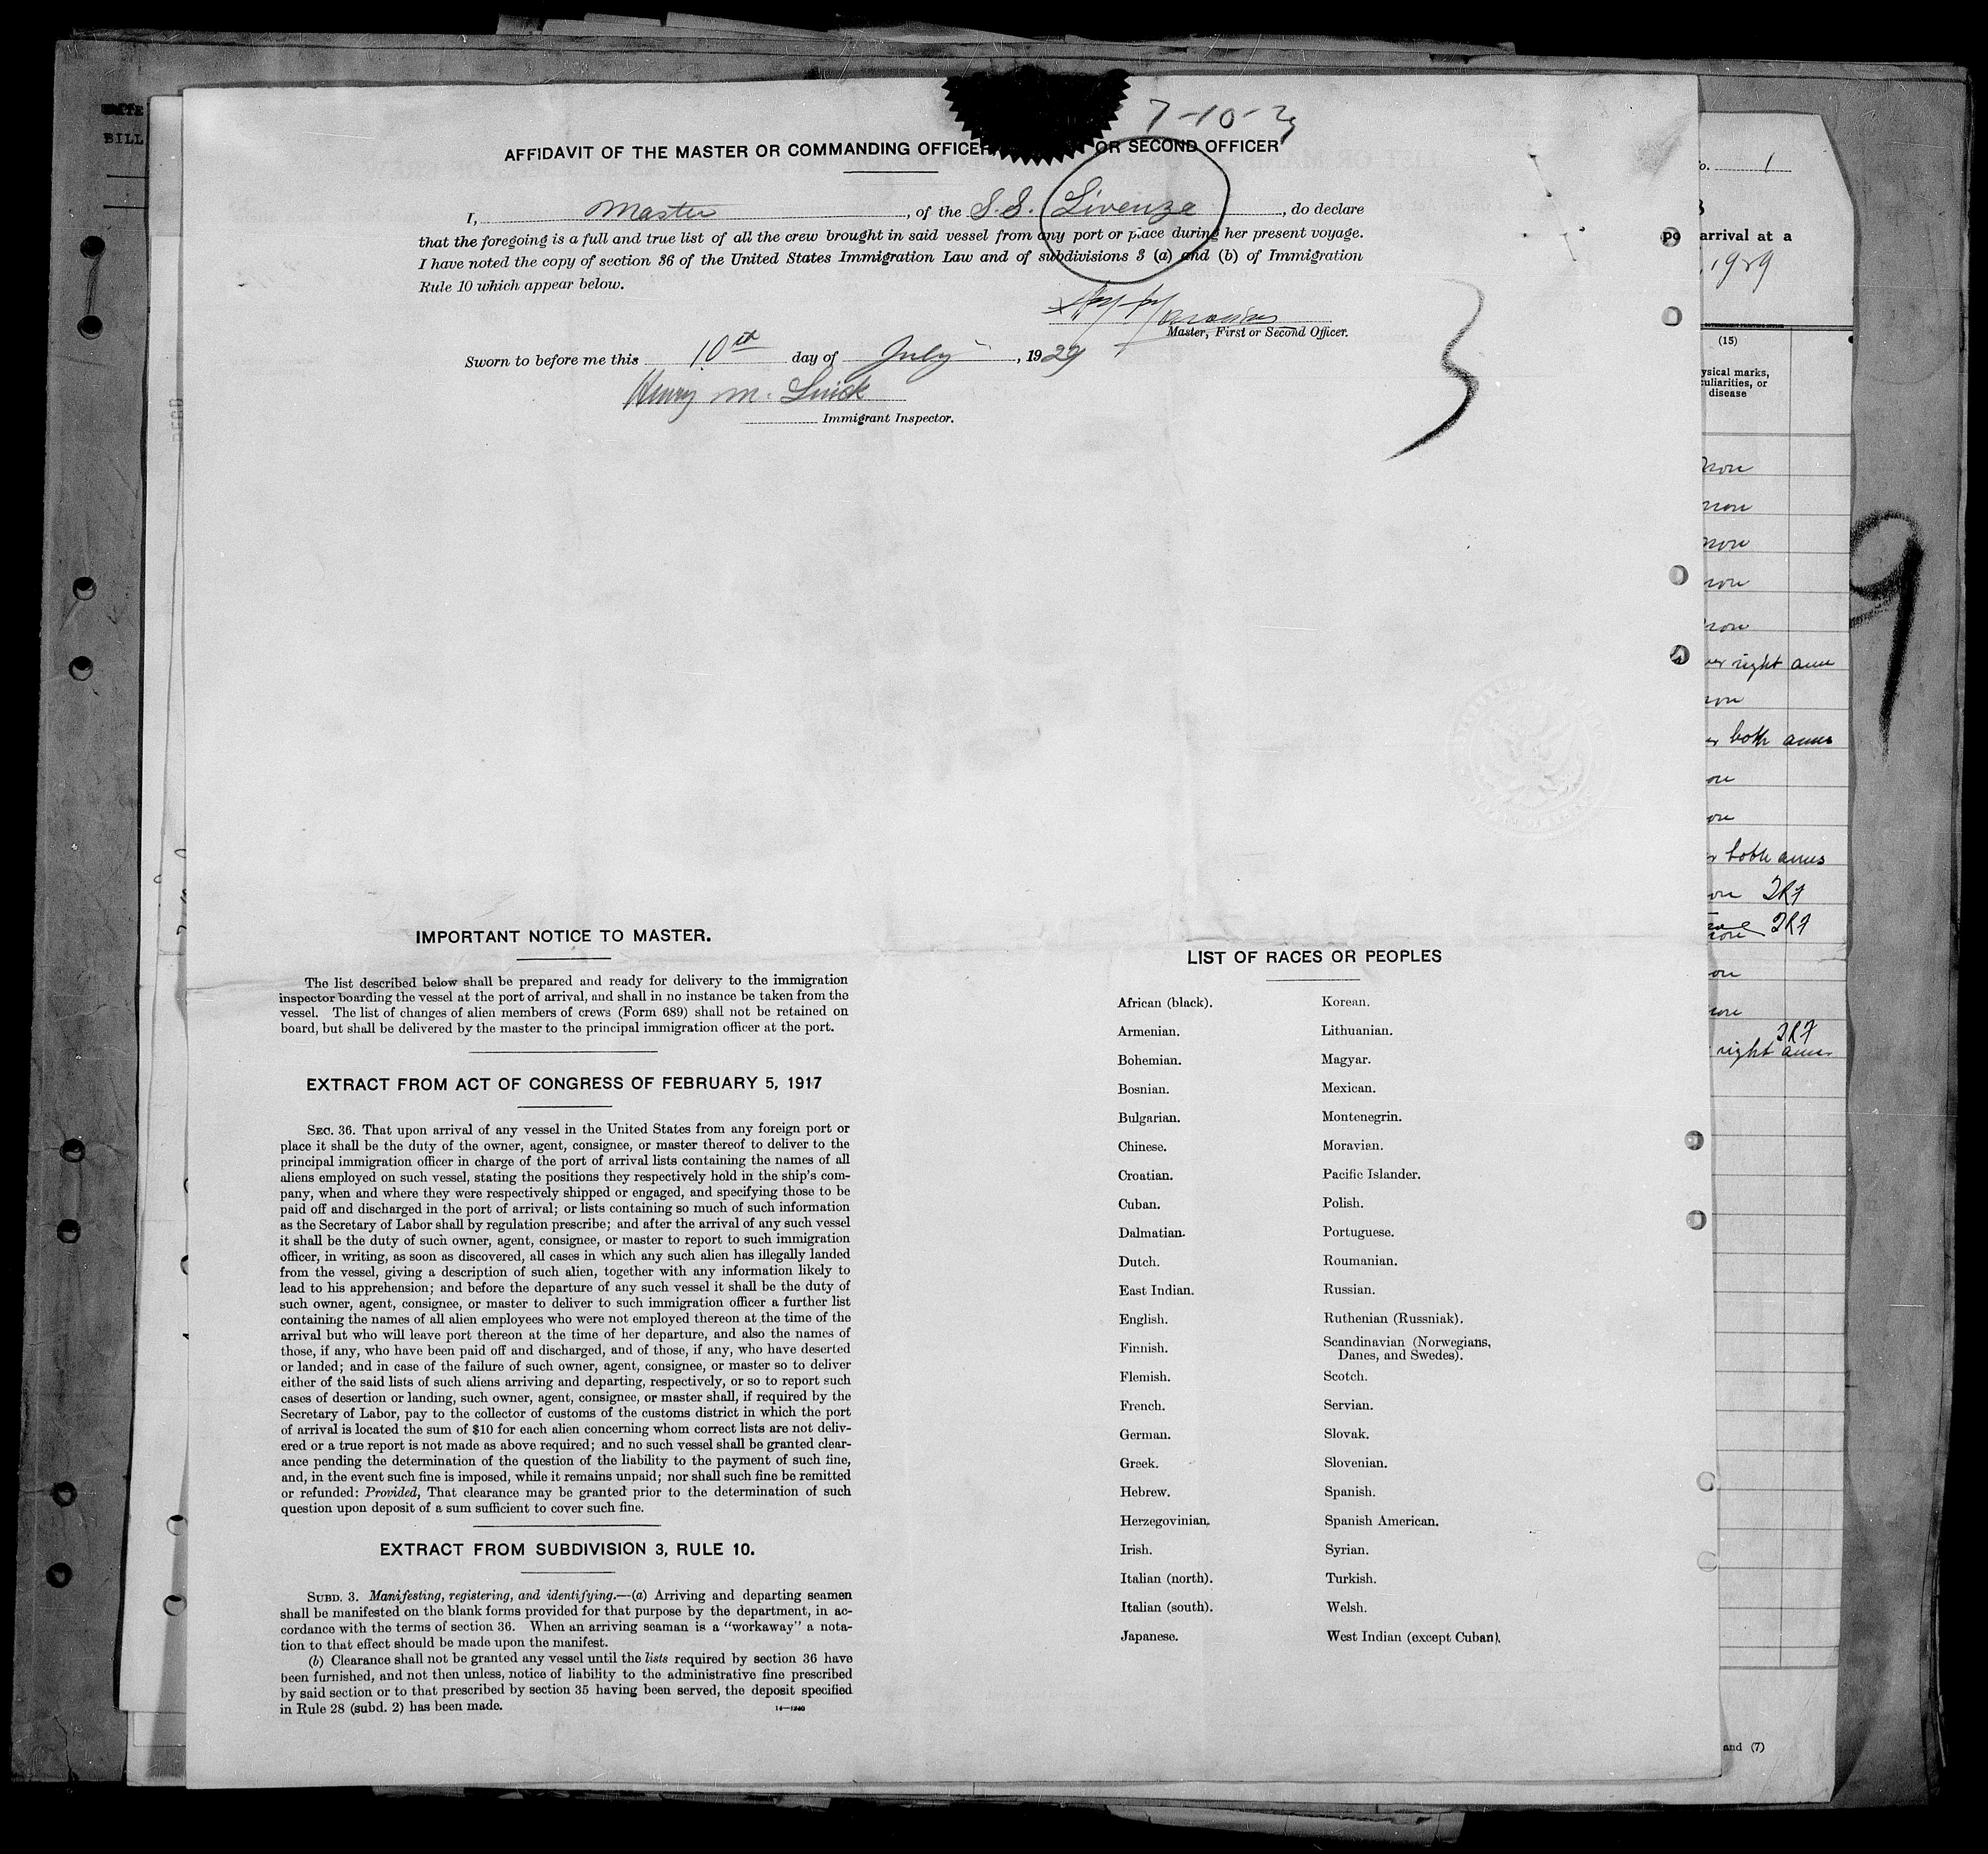 7-10-29
AFFIDAVIT OF THE MASTER OR COMMANDING OFFICER OR SECOND OFFICER
I, Master, of the S.S. Livenza, do declare
that the foregoing is a full and true list of all the crew brought in said vessel from any port or place during her present voyage.
I have noted the copy of section 36 of the United States Immigration Law and of subdivisions 3 (a) and (b) of Immigration
Rule 10 which appear below.
Master, First or Second Officer.
Sworn to before me this 10th day of July, 1929
Henry M.
Immigrant Inspector.
3
9
BILL
1
arrival at a
, 1929
(15)
disease
right arm
both arms
both arms
right arm
and (7)
IMPORTANT NOTICE TO MASTER.
The list described below shall be prepared and ready for delivery to the immigration
inspector boarding the vessel at the port of arrival, and shall in no instance be taken from the
vessel. The list of changes of alien members of crews (Form 689) shall not be retained on
board, but shall be delivered by the master to the principal immigration officer at the port.
EXTRACT FROM ACT OF CONGRESS OF FEBRUARY 5, 1917
SEC. 36. That upon arrival of any vessel in the United States from any foreign port or
place it shall be the duty of the owner, agent, consignee, or master thereof to deliver to the
principal immigration officer in charge of the port of arrival lists containing the names of all
aliens employed on such vessel, stating the positions they respectively hold in the ship's com-
pany, when and where they were respectively shipped or engaged, and specifying those to be
paid off and discharged in the port of arrival; or lists containing so much of such information
as the Secretary of Labor shall by regulation prescribe; and after the arrival of any such vessel
it shall be the duty of such owner, agent, consignee, or master to report to such immigration
officer, in writing, as soon as discovered, all cases in which any such alien has illegally landed
from the vessel, giving a description of such alien, together with any information likely to
lead to his apprehension; and before the departure of any such vessel it shall be the duty of
such owner, agent, consignee, or master to deliver to such immigration officer a further list
containing the names of all alien employees who were not employed thereon at the time of the
arrival but who will leave port thereon at the time of her departure, and also the names of
those, if any, who have been paid off and discharged, and of those, if any, who have deserted
or landed; and in case of the failure of such owner, agent, consignee, or master so to deliver
either of the said lists of such aliens arriving and departing, respectively, or so to report such
cases of desertion or landing, such owner, agent, consignee, or master shall, if required by the
Secretary of Labor, pay to the collector of customs of the customs district in which the port
of arrival is located the sum of $10 for each alien concerning whom correct lists are not deliv-
ered or a true report is not made as above required; and no such vessel shall be granted clear-
ance pending the determination of the question of the liability to the payment of such fine,
and, in the event such fine is imposed, while it remains unpaid; nor shall such fine be remitted
or refunded: Provided, That clearance may be granted prior to the determination of such
question upon deposit of a sum sufficient to cover such fine.
EXTRACT FROM SUBDIVISION 3, RULE 10.
SUBD. 3. Manifesting, registering, and identifying.—(a) Arriving and departing seamen
shall be manifested on the blank forms provided for that purpose by the department, in ac-
cordance with the terms of section 36. When an arriving seaman is a "workaway" a nota-
tion to that effect should be made upon the manifest.
(b) Clearance shall not be granted any vessel until the lists required by section 36 have
been furnished, and not then unless, notice of liability to the administrative fine prescribed
by said section or to that prescribed by section 35 having been served, the deposit specified
in Rule 28 (subd. 2) has been made.
LIST OF RACES OR PEOPLES
African (black). Korean.
Armenian. Lithuanian.
Bohemian. Magyar.
Bosnian. Mexican.
Bulgarian. Montenegrin.
Chinese. Moravian.
Croatian. Pacific Islander.
Cuban. Polish.
Dalmatian. Portuguese.
Dutch. Roumanian.
East Indian. Russian.
English. Ruthenian (Russniak).
Finnish. Scandinavian (Norwegians,
Danes, and Swedes).
Flemish. Scotch.
French. Servian.
German. Slovak.
Greek. Slovenian.
Hebrew. Spanish.
Herzegovinian. Spanish American.
Irish. Syrian.
Italian (north). Turkish.
Italian (south). Welsh.
Japanese. West Indian (except Cuban).